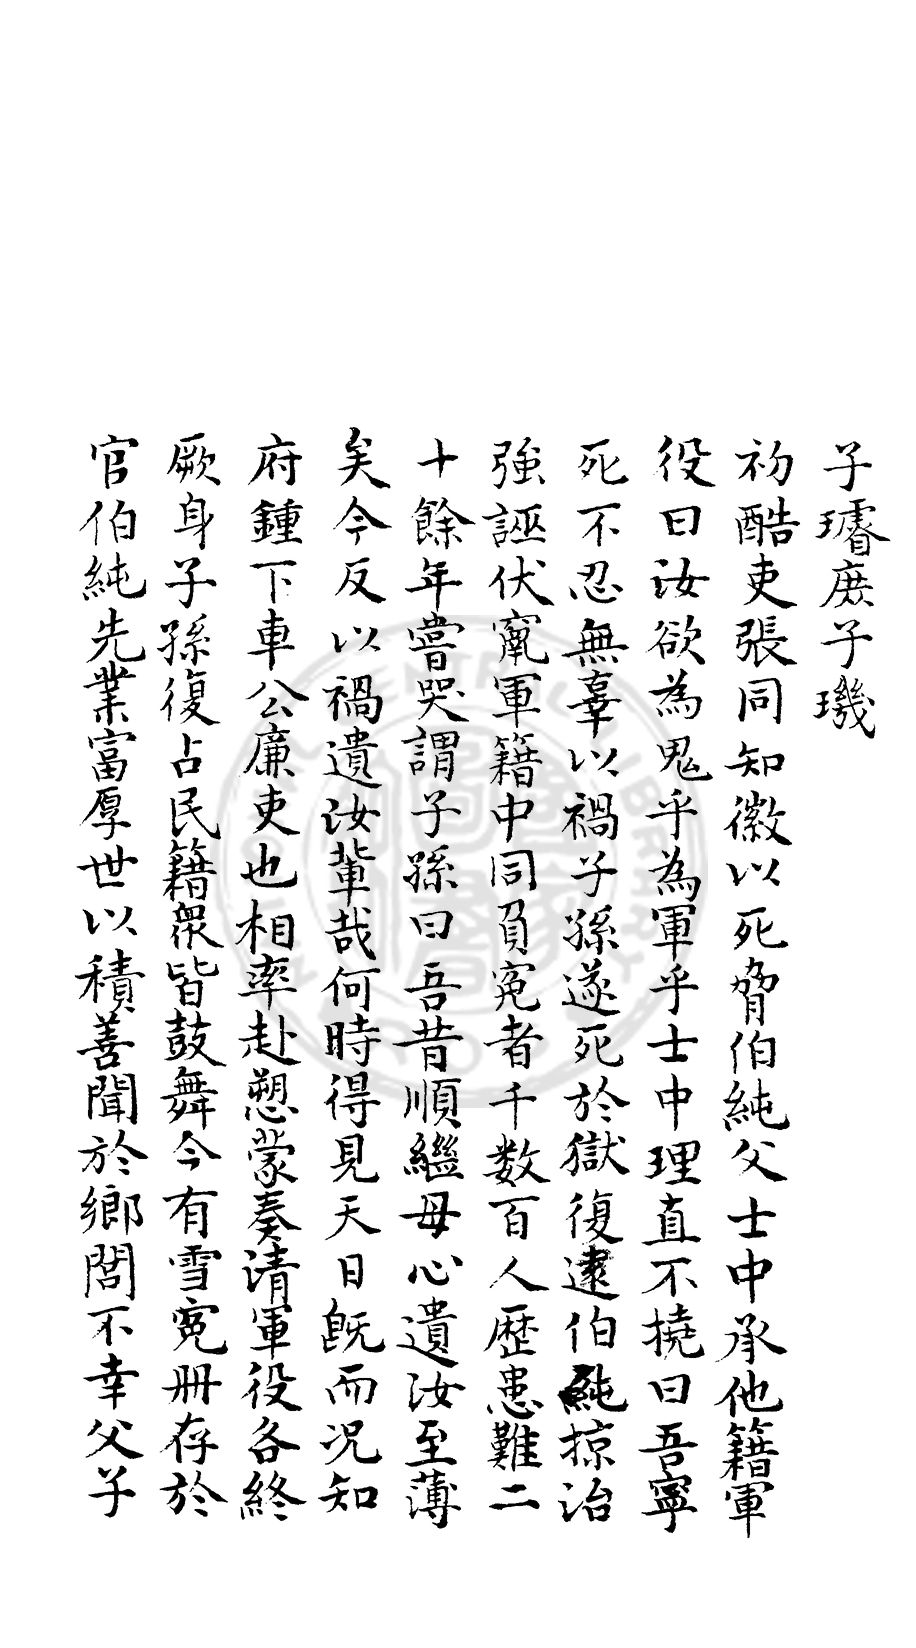 子璿庶子璣
初酷吏張同知徽以死脅伯純父士中承他籍軍
役曰汝欲為鬼乎為軍乎士中理直不撓曰吾寧
死不忍無辜以禍子孫遂死於獄復逮伯純掠治
強誣伏竄軍籍中同負寃者千數百人歷患難二
十餘年嘗哭謂子孫曰吾昔順繼母心遺汝至薄
矣今反以禍遺汝輩哉何時得見天日旣而况知
府鍾下車公廉吏也相率赴愬蒙奏清軍役各終
厥身子孫復占民籍衆皆鼓舞今有雪寃册存於
官伯純先業富厚世以積善聞於鄉閭不幸父子